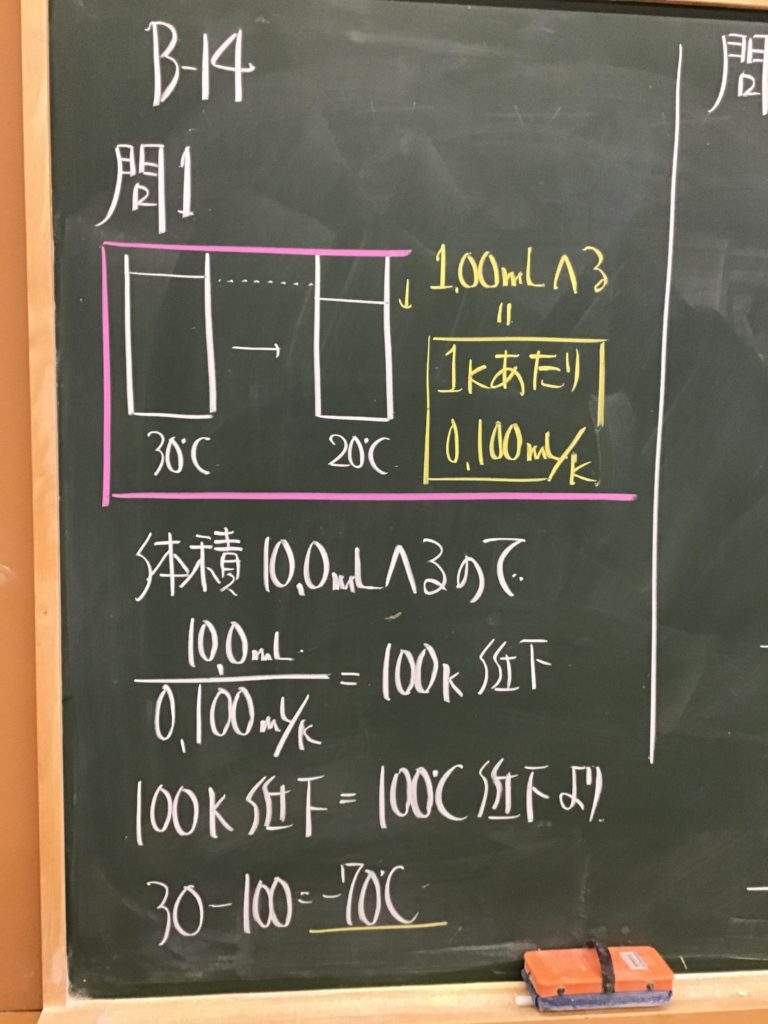 B-14
問1
1.00mLへる
=
1Kあたり
0.100mL/K
30℃
20℃
体積10.0mLへるので
10.0mL
0.100mL/K
= 100K 低下
100K 低下 = 100℃ 低下より
30-100=-70℃
問